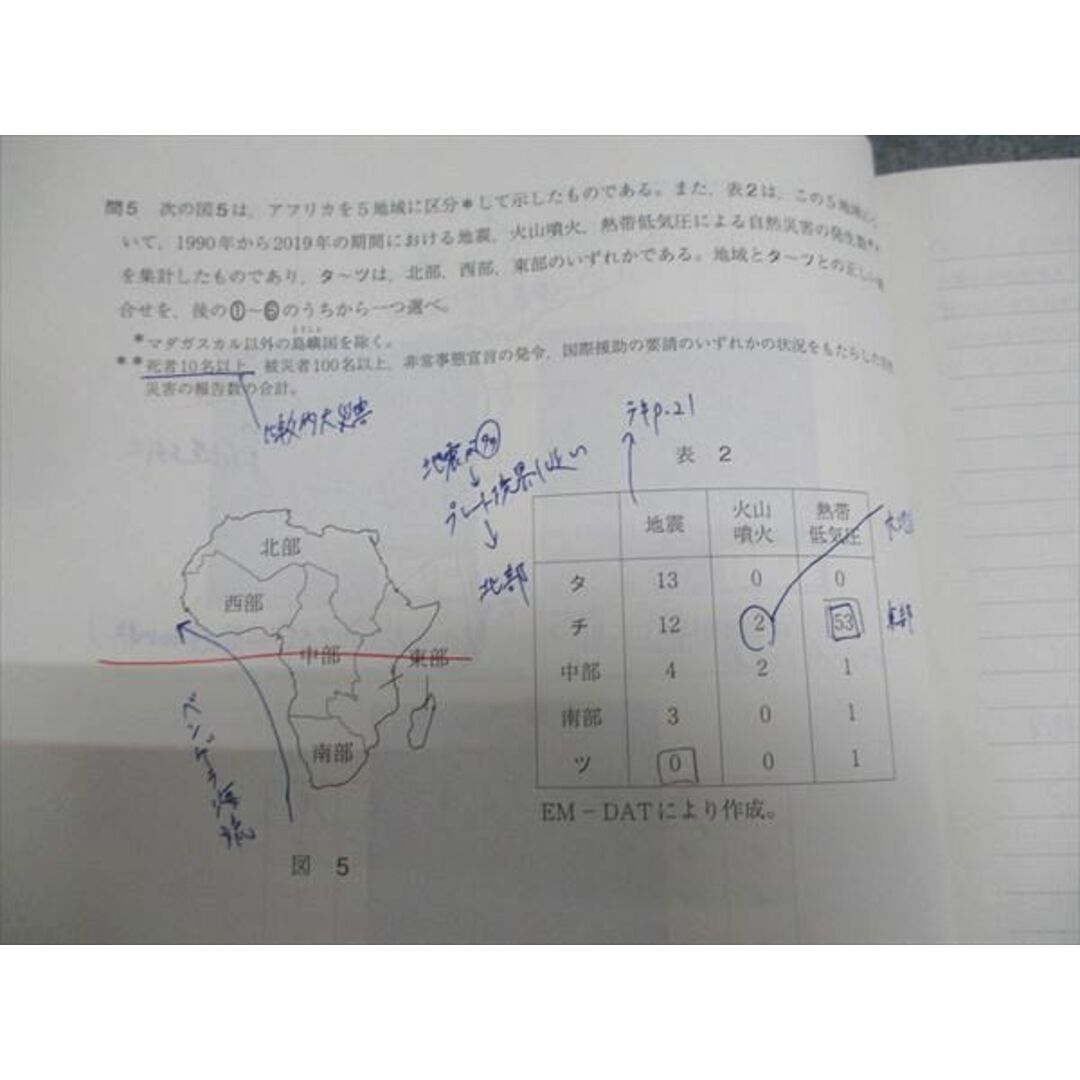 問5 次の図5は，アフリカを5地域に区分*して示したものである。また，表2は，この5地域に
いて，1990年から2019年の期間における地震，火山噴火，熱帯低気圧による自然災害の発生数**
を集計したものであり，タ～ツは，北部，西部，東部のいずれかである。地域とタ～ツとの正しい
合せを，後の①～⑥のうちから一つ選べ。
*マダガスカル以外の島嶼国を除く。
とうしょ
**死者10名以上，被災者100名以上，非常事態宣言の発令，国際援助の要請のいずれかの状況をもたらした
災害の報告数の合計。
比較的大災害
地震が多い
↓
プレート境界に近い
↓
北部
テキp.21
表 2
地震 火山噴火 熱帯低気圧
タ 13 0 0
チ 12 2 53 東部
中部 4 2 1
南部 3 0 1
ツ 0 0 1
EM－DATにより作成。
北部
西部
中部
東部
南部
ベンゲラ海流
図 5